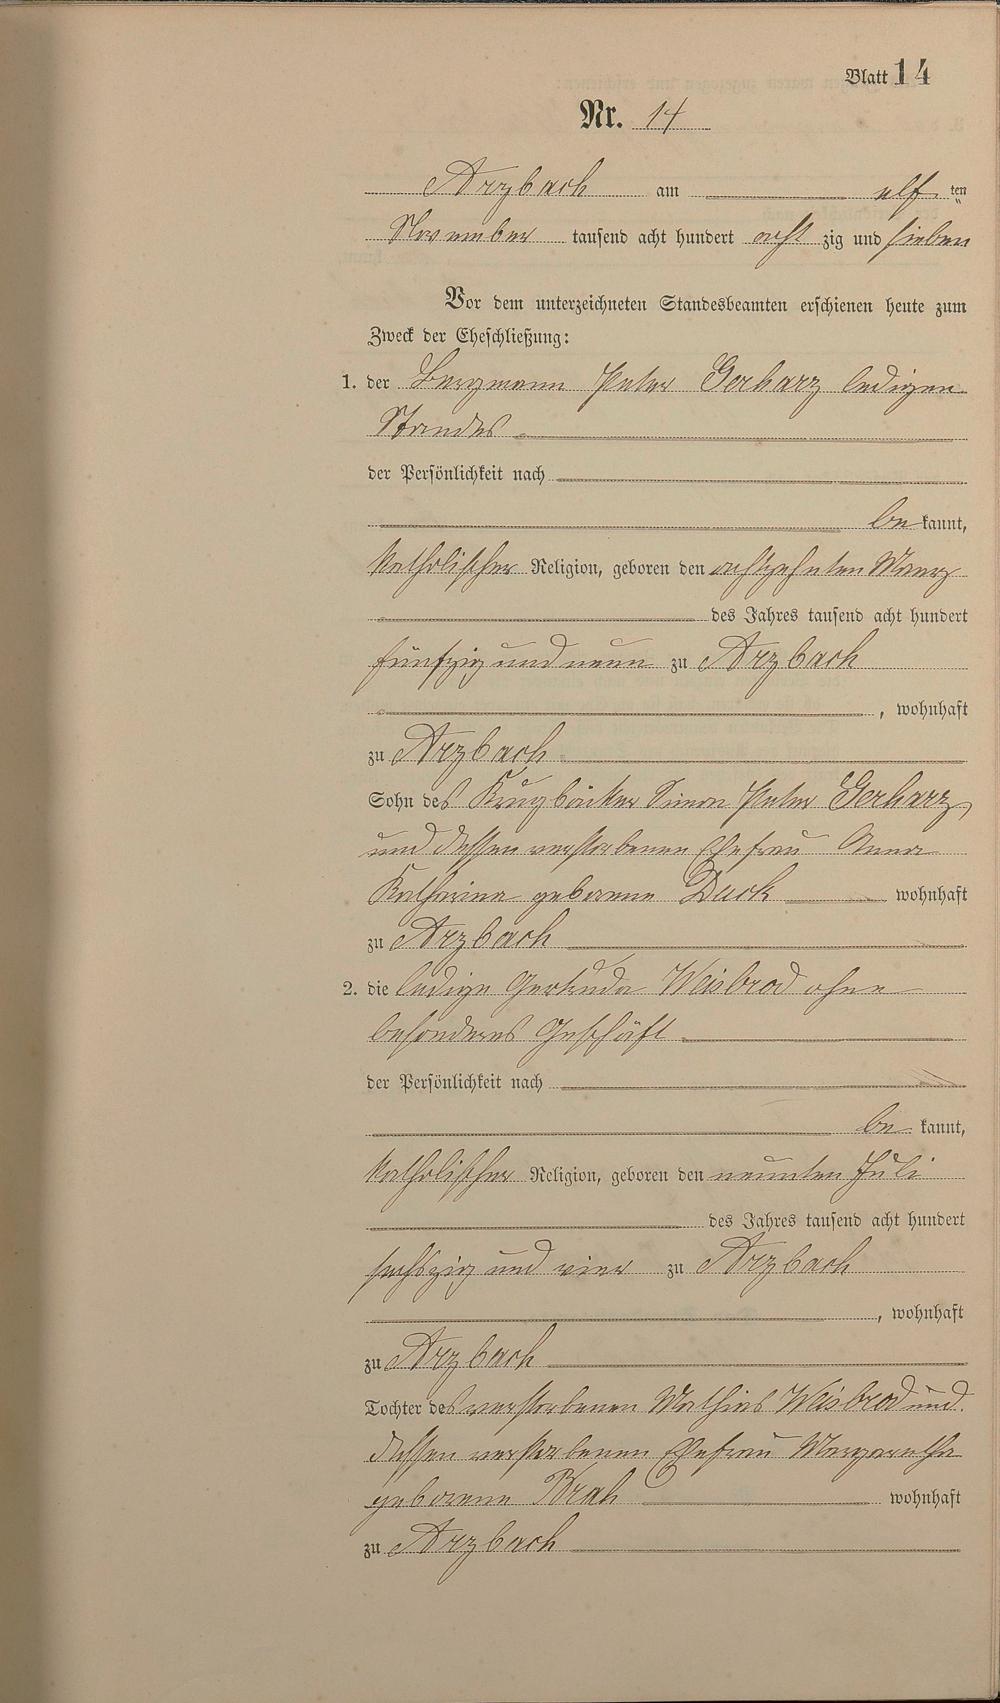 Blatt 14
Nr. 14
Arzbach am elf ten
November tausend acht hundert acht zig und sieben
Vor dem unterzeichneten Standesbeamten erschienen heute zum
Zweck der Eheschließung:
1. der Bergmann Peter Gerharz ledigen
Standes
der Persönlichkeit nach
be kannt,
katholischer Religion, geboren den achtzehnten Maerz
des Jahres tausend acht hundert
fünfzig und neun zu Arzbach
, wohnhaft
zu Arzbach
Sohn des Krugbäcker Simon Peter Gerharz,
und dessen verstorbenen Ehefrau Anna
Katharina geborene Duck wohnhaft
zu Arzbach
2. die ledige Gertruda Weisbrod ohne
besonderes Geschäft
der Persönlichkeit nach
be kannt,
katholischer Religion, geboren den neunten Juli
des Jahres tausend acht hundert
sechszig und vier zu Arzbach
, wohnhaft
zu Arzbach
Tochter des verstorbenen Mathias Weisbrod und
dessen verstorbenen Ehefrau Margaretha
geborene Brah wohnhaft
zu Arzbach